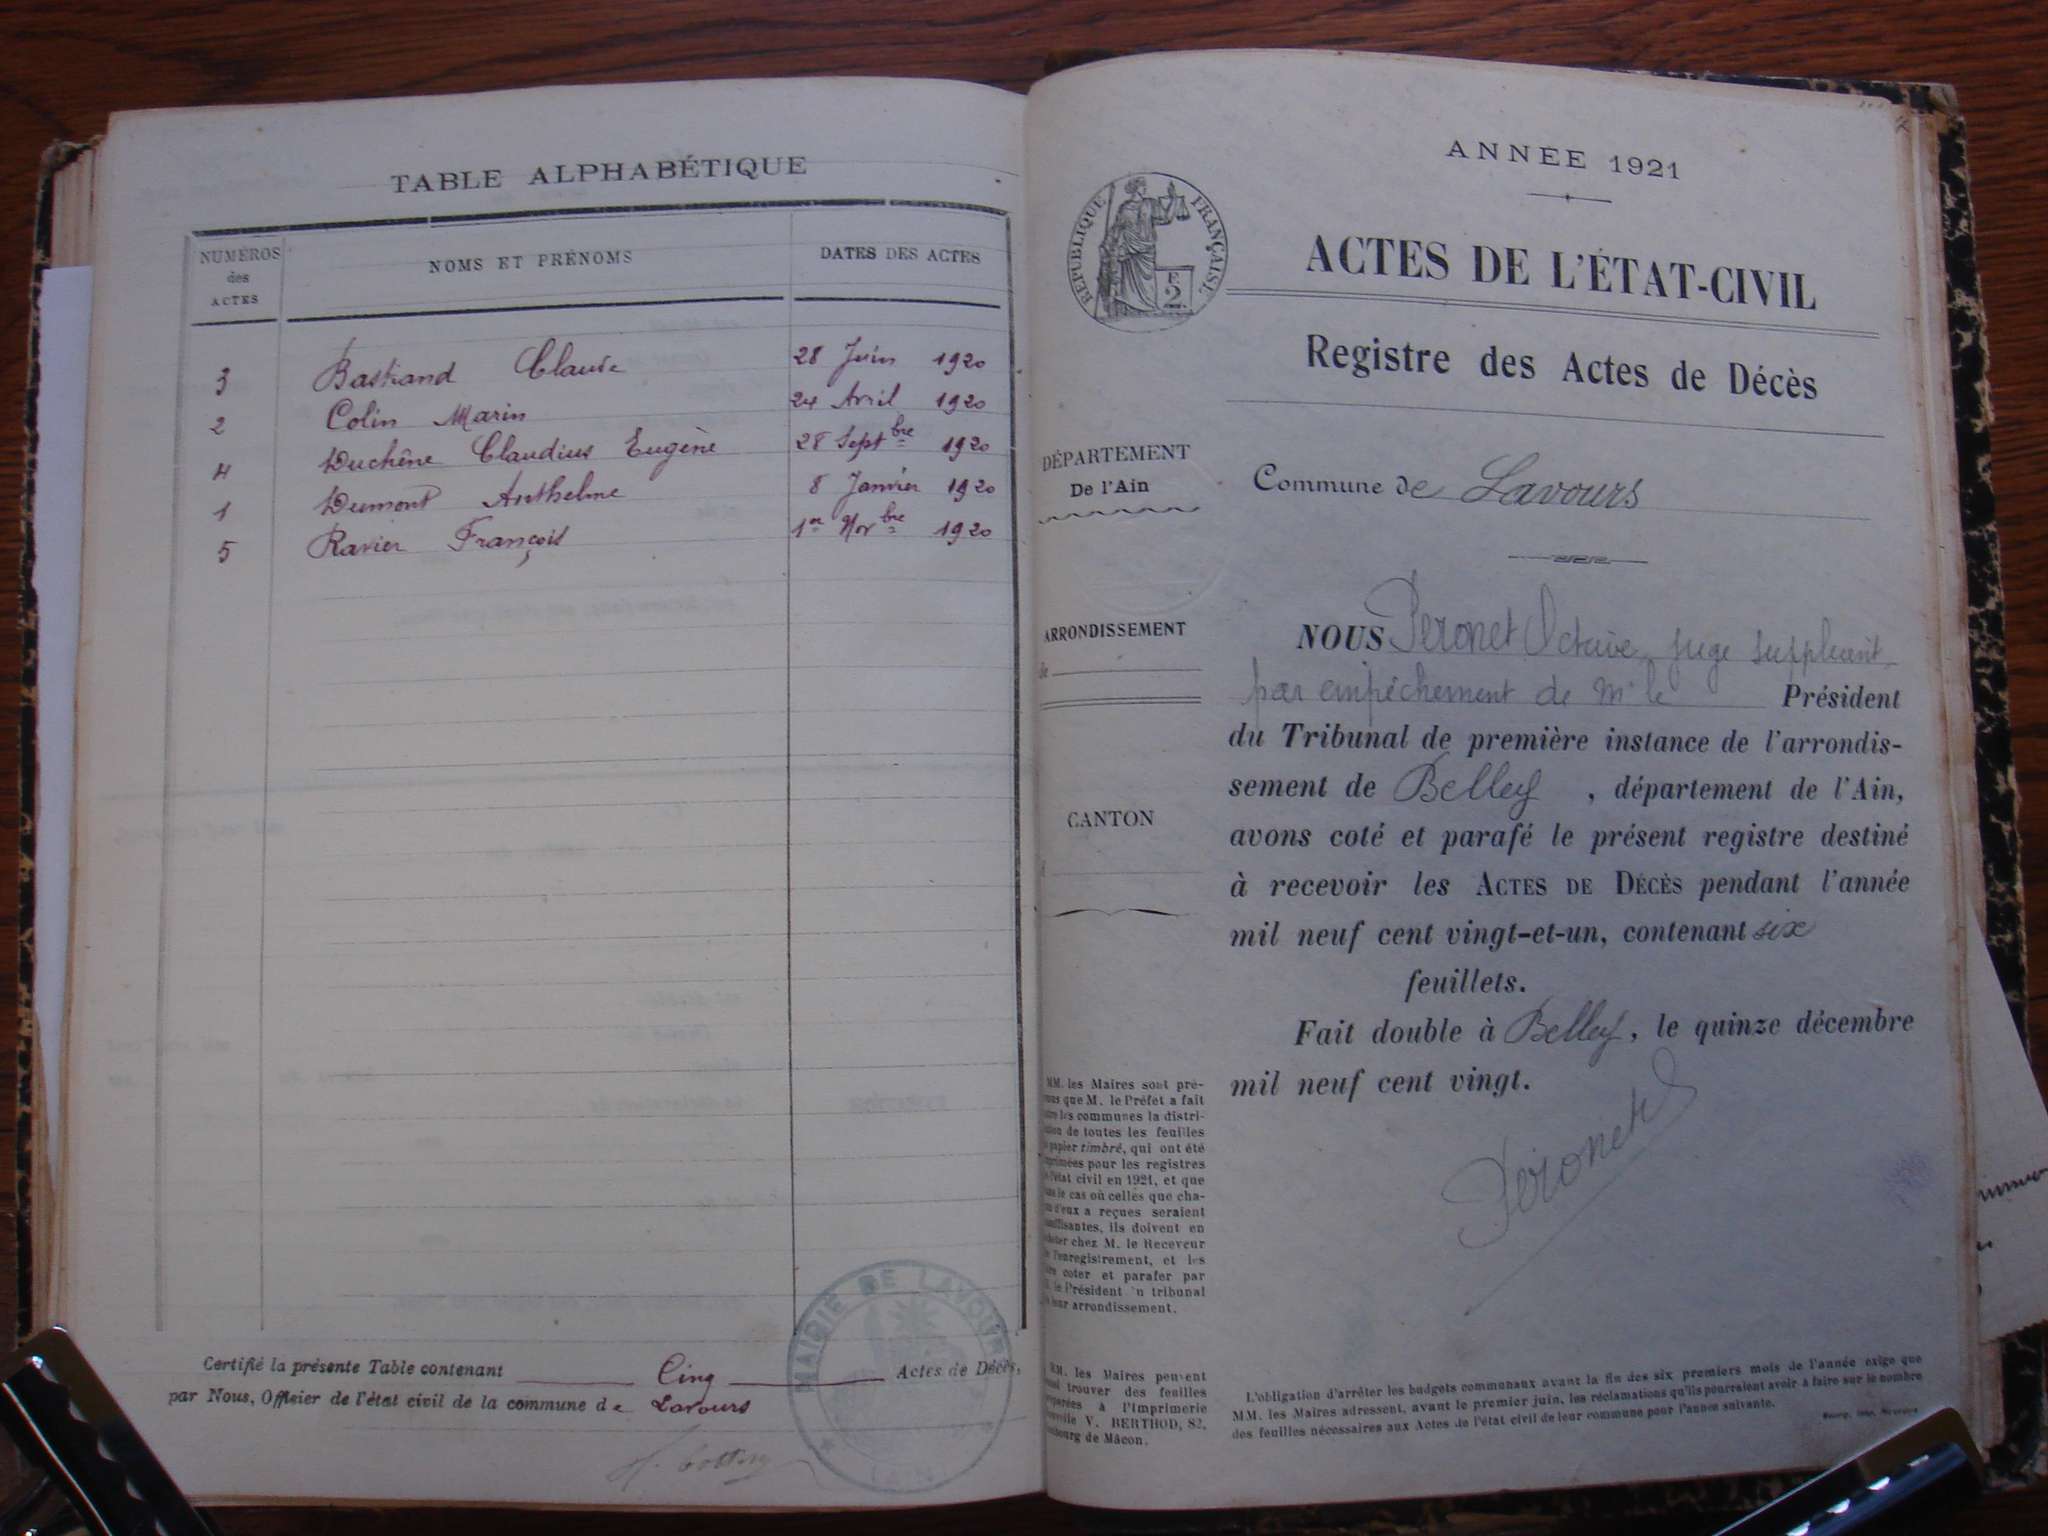 TABLE ALPHABÉTIQUE
NUMÉROS des ACTES NOMS ET PRÉNOMS DATES DES ACTES
3 Bastrand Claude 28 Juin 1920
2 Colin Marin 24 Avril 1920
4 Duchêne Claudius Eugène 28 Septbre 1920
1 Dumont Anthelme 8 Janvier 1920
5 Ravier François 1er Novbre 1920
Certifié la présente Table contenant Cinq Actes de Décès,
par Nous, Officier de l'état civil de la commune de Lavours
MAIRIE DE LAVOURS
(AIN)
ANNÉE 1921
RÉPUBLIQUE FRANÇAISE
2
ACTES DE L'ÉTAT-CIVIL
Registre des Actes de Décès
DÉPARTEMENT
De l'Ain
Commune de Lavours
ARRONDISSEMENT
de
CANTON
NOUS Peronet Octave, juge suppléant
par empêchement de Mr le Président
du Tribunal de première instance de l'arrondis-
sement de Belley, département de l'Ain,
avons coté et parafé le présent registre destiné
à recevoir les ACTES DE DÉCÈS pendant l'année
mil neuf cent vingt-et-un, contenant six
feuillets.
Fait double à Belley, le quinze décembre
mil neuf cent vingt.
Peronet
MM. les Maires sont pré-
que M. le Préfet a fait
les communes la distri-
de toutes les feuilles
papier timbré, qui ont été
pour les registres
l'état civil en 1921, et que
le cas où celles que cha-
d'eux a reçues seraient
ils doivent en
chez M. le Receveur
l'enregistrement, et les
coter et parafer par
le Président tribunal
leur arrondissement.
MM. les Maires peuvent
trouver des feuilles
à l'Imprimerie
V. BERTHOD, 82,
de Mâcon.
L'obligation d'arrêter les budgets communaux avant la fin des six premiers mois de l'année exige que
MM. les Maires adressent, avant le premier juin, les réclamations qu'ils pourraient avoir à faire sur le nombre
des feuilles nécessaires aux Actes de l'état civil de leur commune pour l'année suivante.